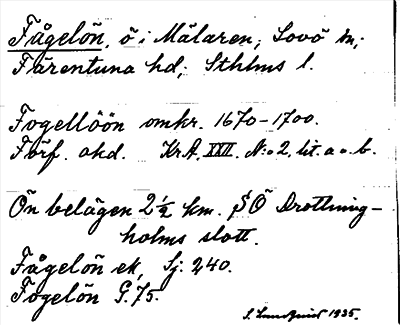 Fågelön, ö i Mälaren; Lovö sn;
Färentuna hd; Sthlms l.
Fogellöön omkr. 1670-1700.
Förf. okd. KrA. XXII. N:o 2. lit. a o. b.
Ön belägen 2½ km. SÖ Drottning-
holms slott.
Fågelön ek, Sj. 240.
Fogelön G. 75.
S. Lundqvist 1935.